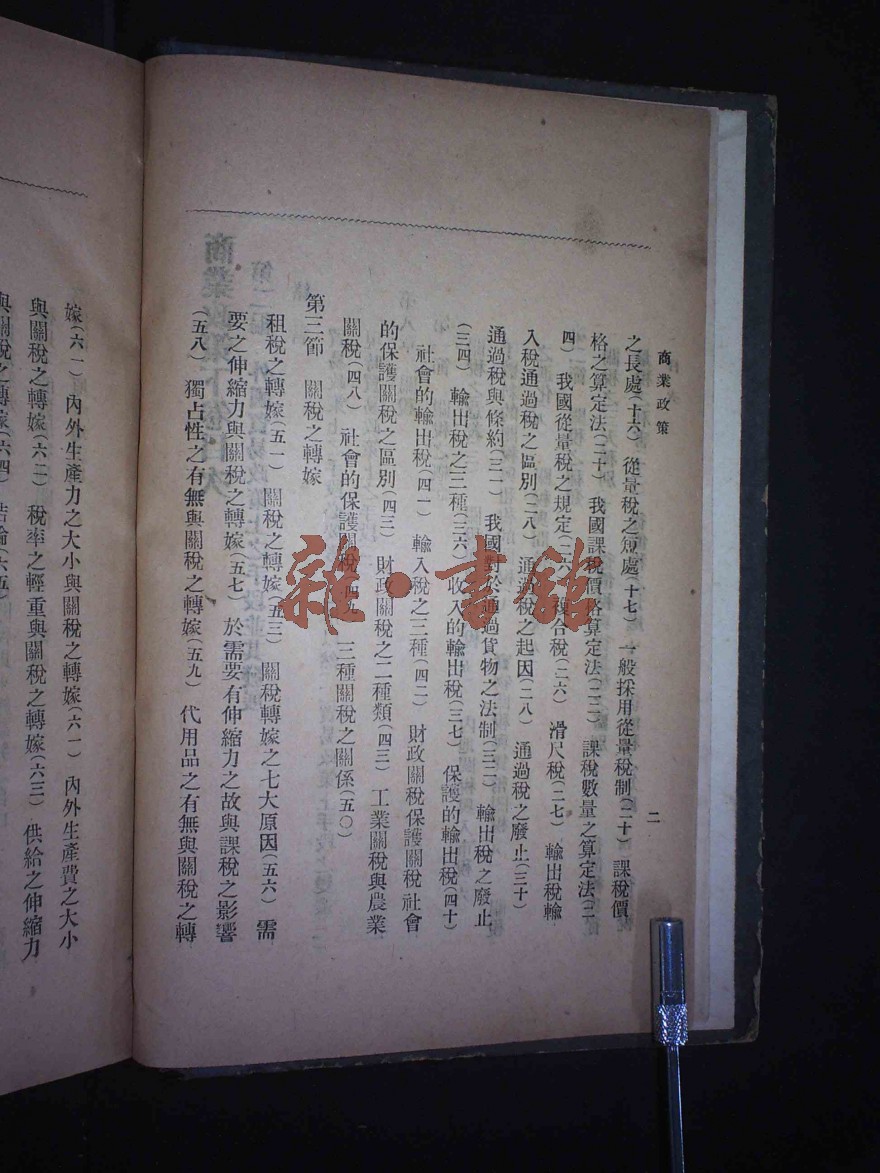 商業政策
二
之長處(十六) 從量稅之短處(十七) 一般採用從量稅制(二十) 課稅價
格之算定法(二十) 我國課稅價格算定法(二二) 課稅數量之算定法(二
四) 我國從量稅之規定(二六) 複合稅(二六) 滑尺稅(二七) 輸出稅輸
入稅通過稅之區別(二八) 通過稅之起因(二八) 通過稅之廢止(三十)
通過稅與條約(三一) 我國對於通過貨物之法制(三二) 輸出稅之廢止
(三四) 輸出稅之三種(三六) 收入的輸出稅(三七) 保護的輸出稅(四十)
社會的輸出稅(四一) 輸入稅之三種(四二) 財政關稅保護關稅社會
的保護關稅之區別(四三) 財政關稅之二種類(四三) 工業關稅與農業
關稅(四八) 社會的保護關稅(四九) 三種關稅之關係(五〇)
第三節 關稅之轉嫁
租稅之轉嫁(五一) 關稅之轉嫁(五三) 關稅轉嫁之七大原因(五六) 需
要之伸縮力與關稅之轉嫁(五七) 於需要有伸縮力之故與課稅之影響
(五八) 獨占性之有無與關稅之轉嫁(五九) 代用品之有無與關稅之轉
嫁(六一) 內外生產力之大小與關稅之轉嫁(六一) 內外生產費之大小
與關稅之轉嫁(六二) 稅率之輕重與關稅之轉嫁(六三) 供給之伸縮力
與關稅之轉嫁(六四) 結論(六五)
雜·書館